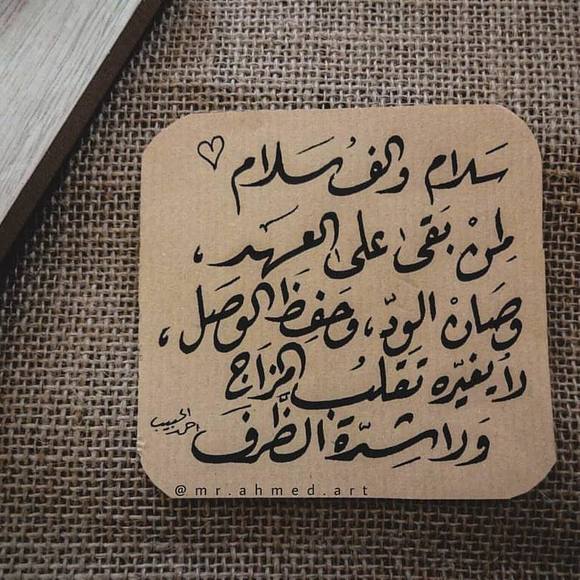 سَلام والفُ سَلام
لِمنْ بَقىٰ علىٰ العهد،
وصَانْ الودّ، وحَفِظَ الوصَل،
لا يغيّره تَقلبُ المزَاج
وَلا شِدّة الظّرفَ
احمد الحبيب
@mr.ahmed.art